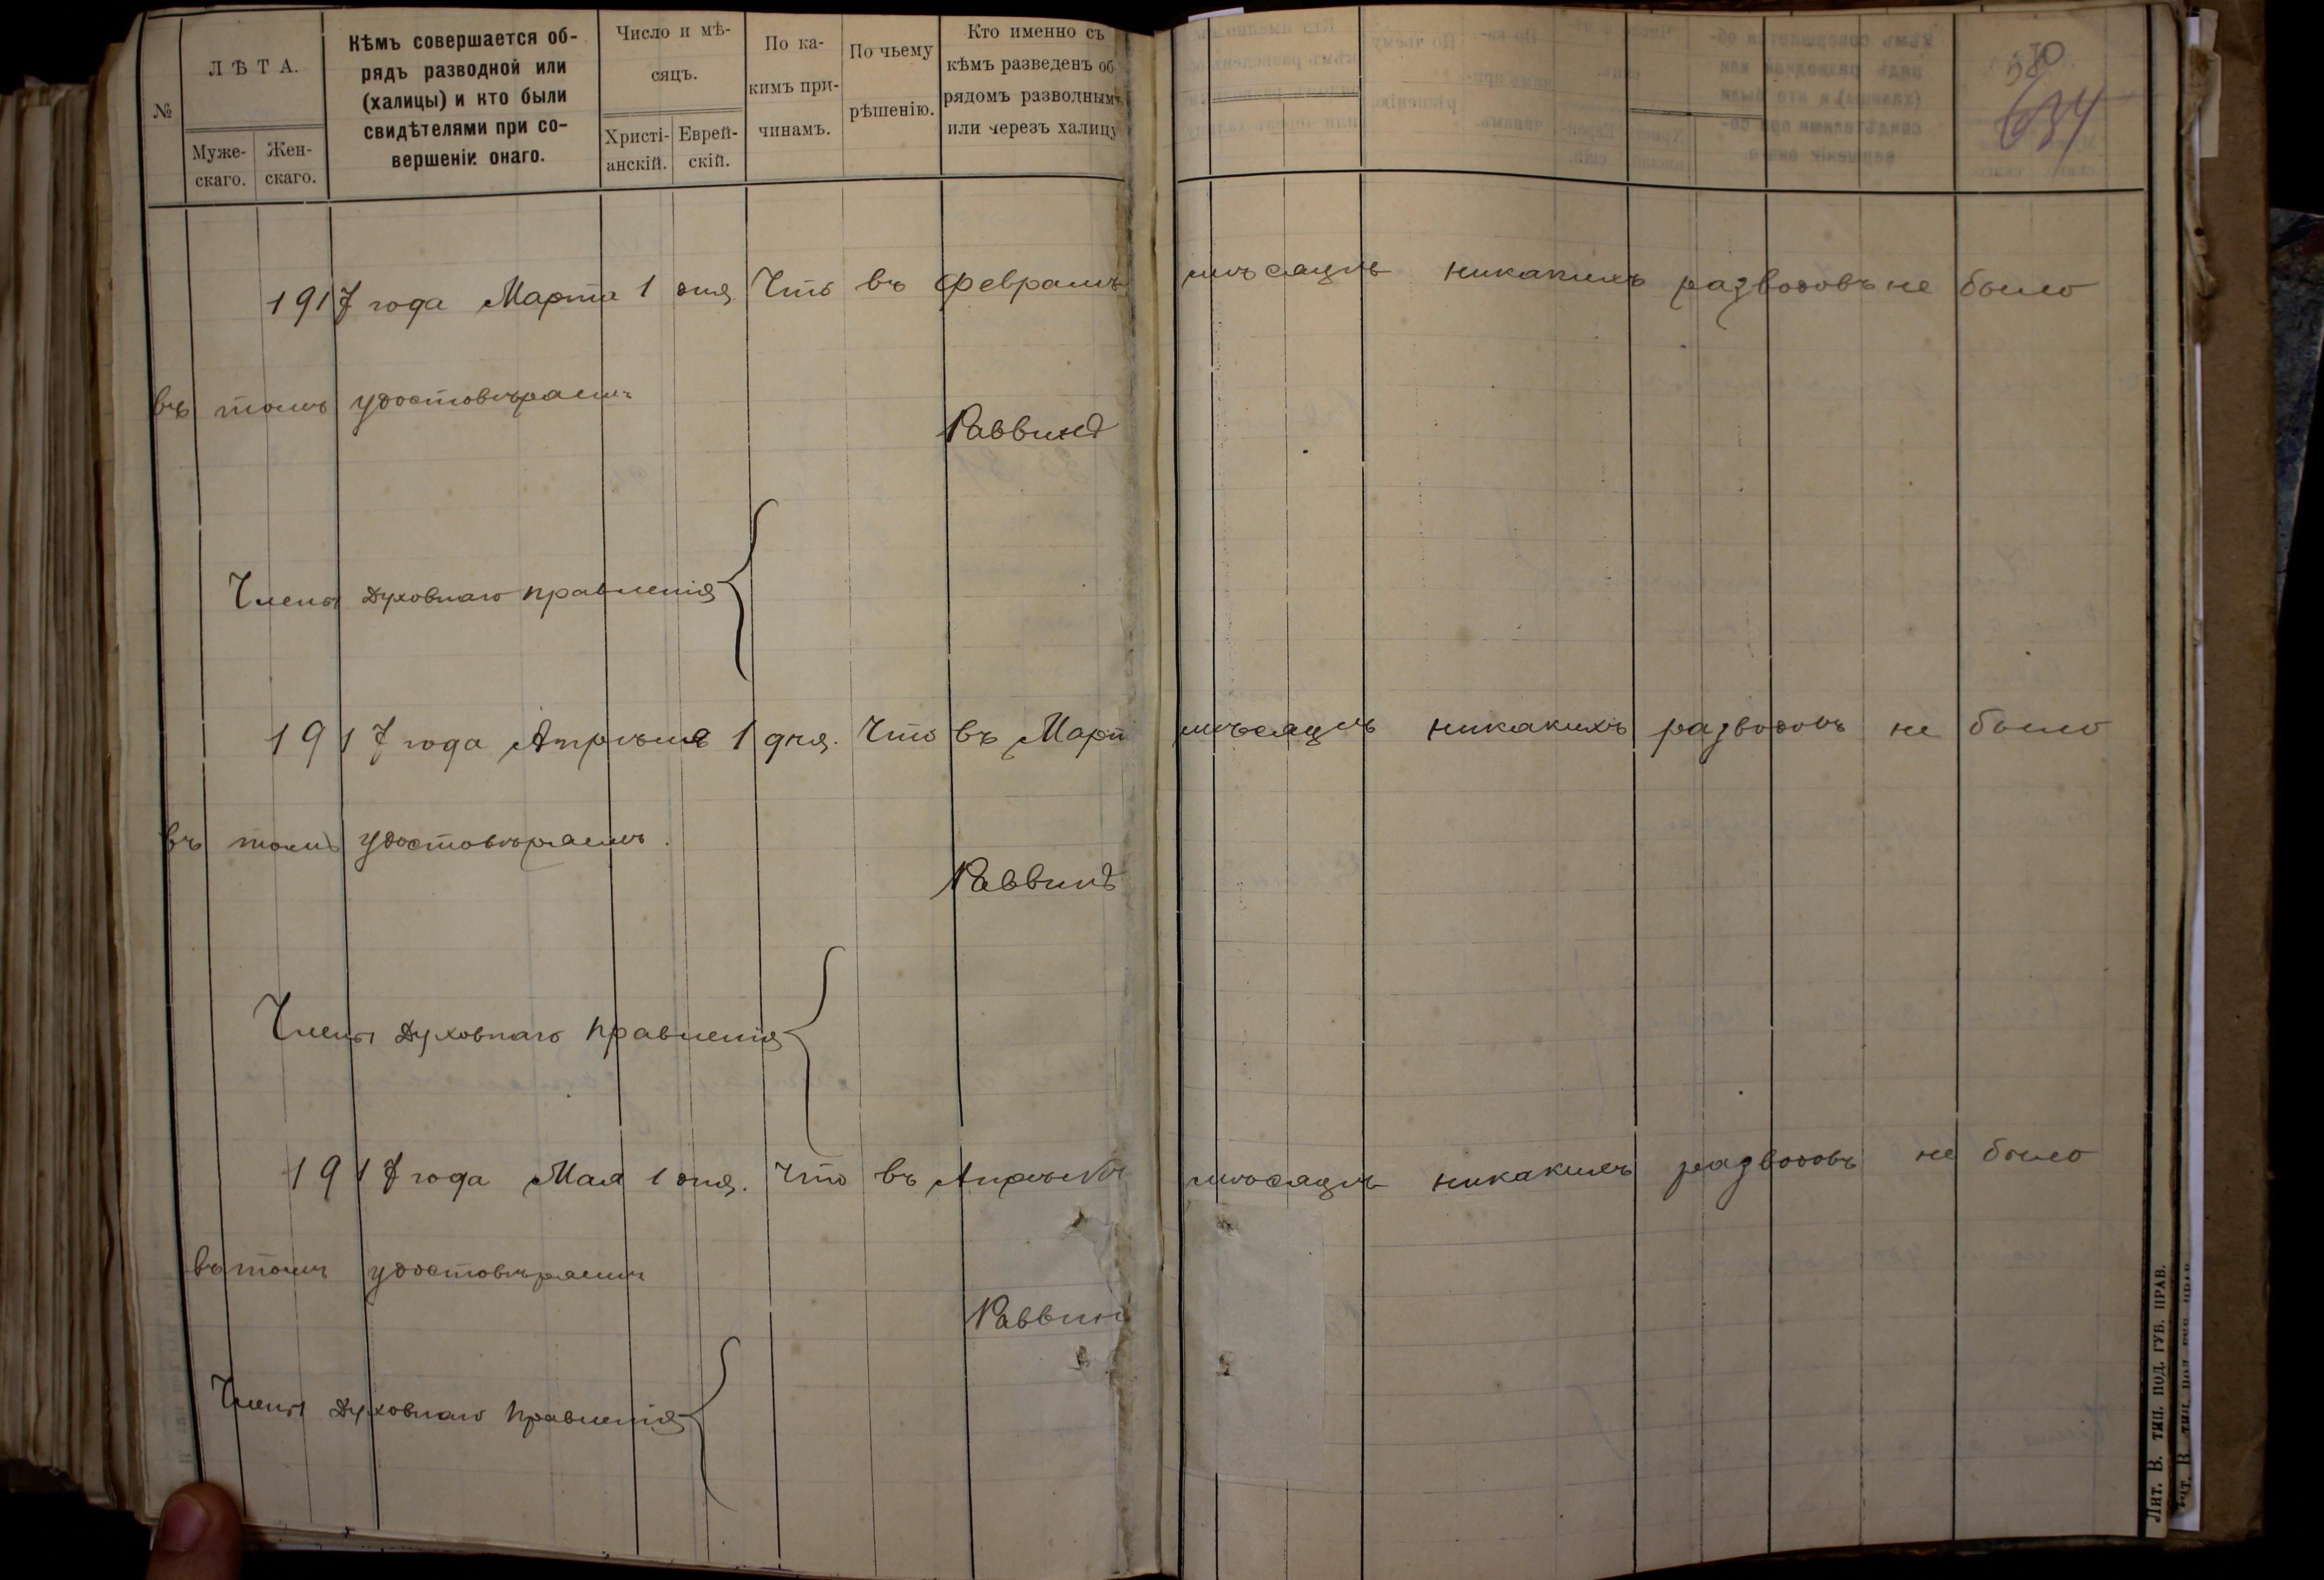 №
ЛѢТА.
Муже-
скаго.
Жен-
скаго.
Кѣмъ совершается об-
рядъ разводной или
(халицы) и кто были
свидѣтелями при со-
вершеніи онаго.
Число и мѣ-
сяцъ.
Христі-
анскій.
Еврей-
скій.
По ка-
кимъ при-
чинамъ.
По чьему
рѣшенію.
Кто именно съ
кѣмъ разведенъ об-
рядомъ разводнымъ
или черезъ халицу
570
634
1917 года Марта 1 дня. Что въ Февралѣ мѣсяцѣ никакихъ разводовъ не было
въ томъ удостовѣряемъ
Раввинъ
Члены Духовнаго правленія
1917 года Апрѣля 1 дня. Что въ Март мѣсяцѣ никакихъ разводовъ не было
въ томъ удостовѣряемъ.
Раввинъ
Члены Духовнаго правленія
1917 года Мая 1 дня. Что въ Апрѣлѣ мѣсяцѣ никакихъ разводовъ не было
въ томъ удостовѣряемъ
Раввин
Члены Духовнаго правленія
Лит. В. тип. под. губ. прав.